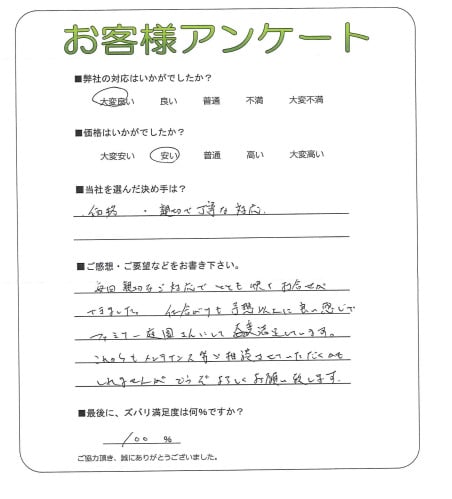 お客様アンケート
■弊社の対応はいかがでしたか？
大変良い 良い 普通 不満 大変不満
■価格はいかがでしたか？
大変安い 安い 普通 高い 大変高い
■当社を選んだ決め手は？
・価格 ・親切で丁寧な対応
■ご感想・ご要望などをお書き下さい。
毎回親切なご対応でとても快くお任せが
できました。仕上がりも予想以上に良い感じで
ファミリー庭園さんにして
これからもメンテナンス等ご相談させていただくかも
しれませんがどうぞよろしくお願い致します。
■最後に、ズバリ満足度は何％ですか？
100 %
ご協力頂き、誠にありがとうございました。